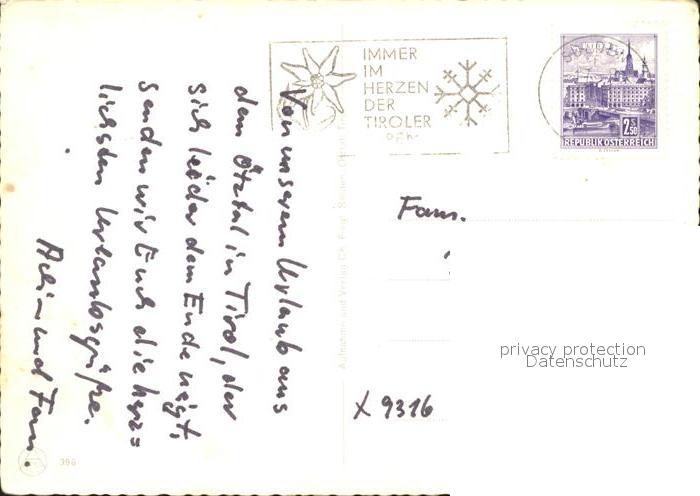 IMMER
IM
HERZEN
DER
TIROLER
2.50
REPUBLIK ÖSTERREICH
Von unserem Urlaub aus
dem Ötztal in Tirol, der
sich leider dem Ende neigt,
senden wir Euch die herz=
lichsten Urlaubsgrüße.
Achim und Fam.
Fam.
X 9316
privacy protection
Datenschutz
396